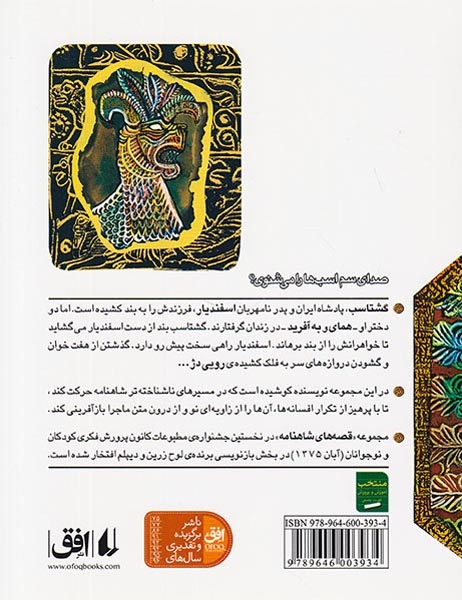 صدای سم اسب‌ها را می‌شنوی؟
گشتاسب، پادشاه ایران و پدر نامهربان اسفندیار، فرزندش را به بند کشیده است. اما دو
دختر او ـ همای و به آفرید ـ در زندان گرفتارند. گشتاسب بند از دست اسفندیار می‌گشاید
تا خواهرانش را از بند برهاند. اسفندیار راهی سخت پیش رو دارد. گذشتن از هفت خوان و
گشودن دروازه‌های سر به فلک کشیده‌ی رویی دژ...
در این مجموعه نویسنده کوشیده است که در مسیرهای ناشناخته‌تر شاهنامه حرکت کند،
تا با پرهیز از تکرار افسانه‌ها، آن‌ها را از زاویه‌ای نو و از درون متن ماجرا بازآفرینی کند.
مجموعه، قصه‌های شاهنامه، در نخستین جشنواره‌ی مطبوعات کانون پرورش فکری کودکان
و نوجوانان (آبان ۱۳۷۵) در بخش بازنویسی برنده‌ی لوح زرین و دیپلم افتخار شده است.
منتخب
ISBN 978-964-600-393-4
9789646003934
ناشر
برگزیده
و تقدیری
سال‌های
افق
OFOQ
نشر افق
www.ofoqbooks.com